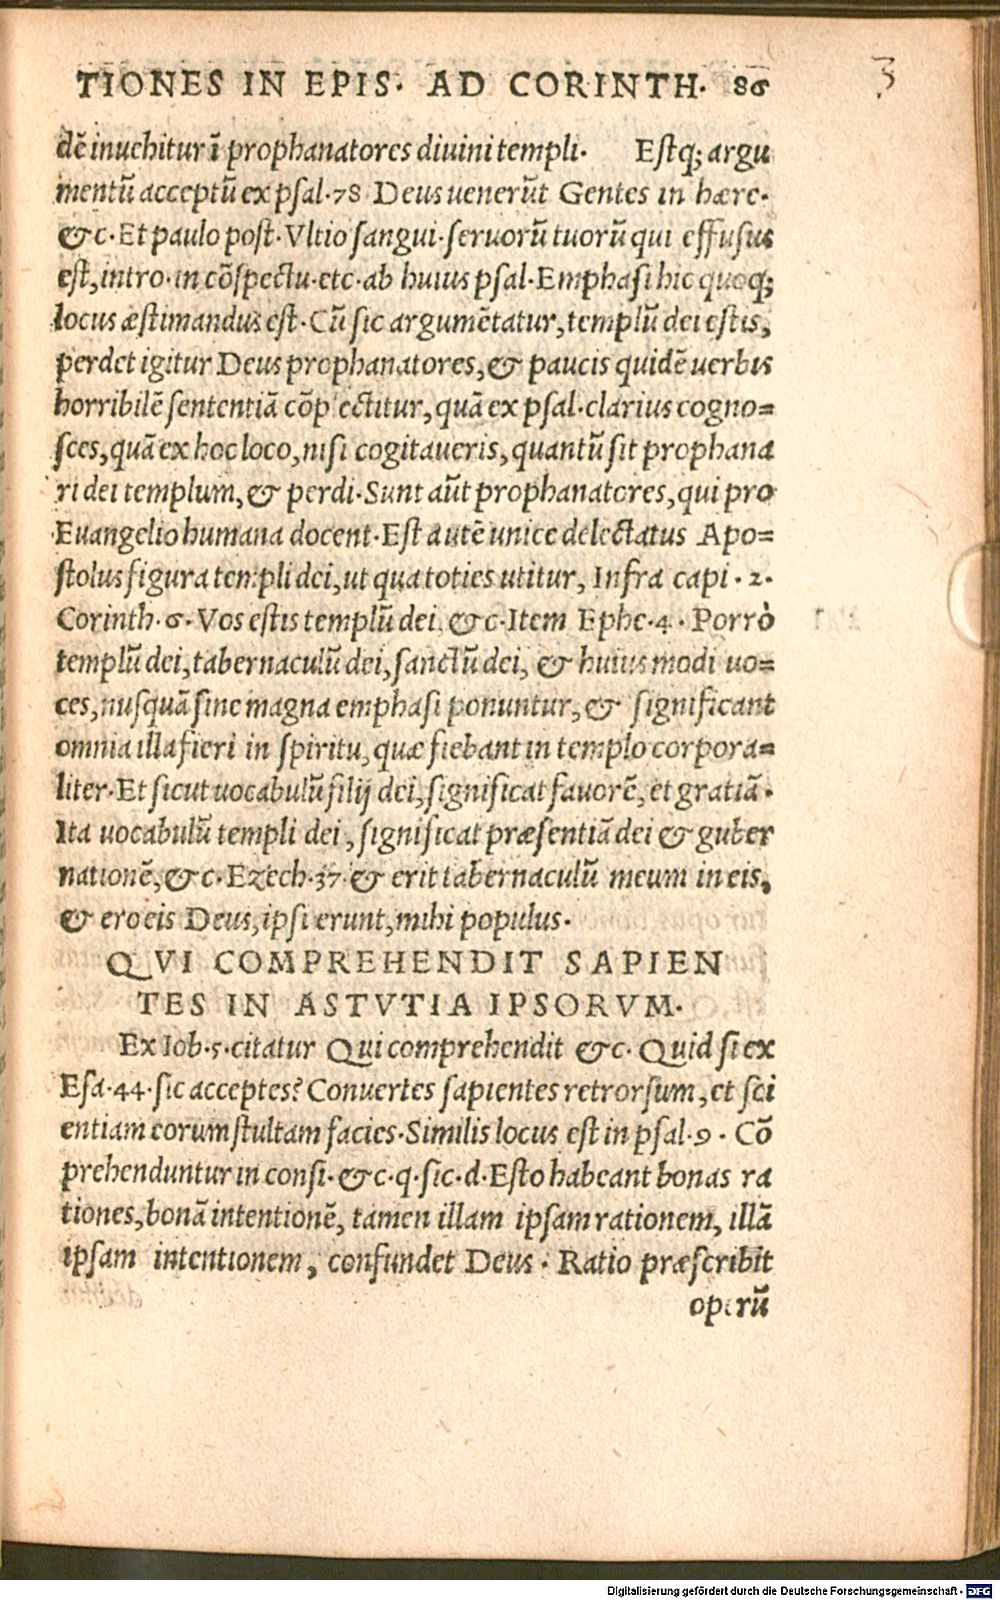 TIONES IN EPIS. AD CORINTH. 86
3
dē inuehitur ī prophanatores diuini templi. Estq; argu
mentū acceptū ex psal. 78 Deus venerūt Gentes in hære.
&c. Et paulo post. Vltio sangui. seruorū tuorū qui effusus
est, intro. in cōspectu. etc. ab huius psal. Emphasi hic quoq;
locus æstimandus est. Cū sic argumētatur, templū dei estis,
perdet igitur Deus prophanatores, & paucis quidē uerbis
horribilē sententiā cōp ectitur, quā ex psal. clarius cogno=
sces, quā ex hoc loco, nisi cogitaueris, quantū sit prophana
ri dei templum, & perdi. Sunt aūt prophanatores, qui pro
Euangelio humana docent. Est autē unice delectatus Apo=
stolus figura templi dei, ut qua toties utitur, Infra capi. 2.
Corinth. 6. Vos estis templū dei. &c. Item Ephe. 4. Porrò
templū dei, tabernaculū dei, sanctū dei, & huius modi uo=
ces, nusquā sine magna emphasi ponuntur, & significant
omnia illa fieri in spiritu, quæ fiebant in templo corpora=
liter. Et sicut uocabulū filij dei, significat fauorē, et gratiā.
Ita uocabulū templi dei, significat præsentiā dei & guber
nationē, &c. Ezech. 37. & erit tabernaculū meum in eis,
& ero eis Deus, ipsi erunt, mihi populus.
QVI COMPREHENDIT SAPIEN
TES IN ASTVTIA IPSORVM.
Ex Iob. 5. citatur Qui comprehendit &c. Quid si ex
Esa. 44. sic acceptes? Conuertes sapientes retrorsum, et sci
entiam eorum stultam facies. Similis locus est in psal. 9. Cō
prehenduntur in consi. &c. q. sic. d. Esto habeant bonas ra
tiones, bonā intentionē, tamen illam ipsam rationem, illā
ipsam intentionem, confundet Deus. Ratio præscribit
operū
Digitalisierung gefördert durch die Deutsche Forschungsgemeinschaft - DFG